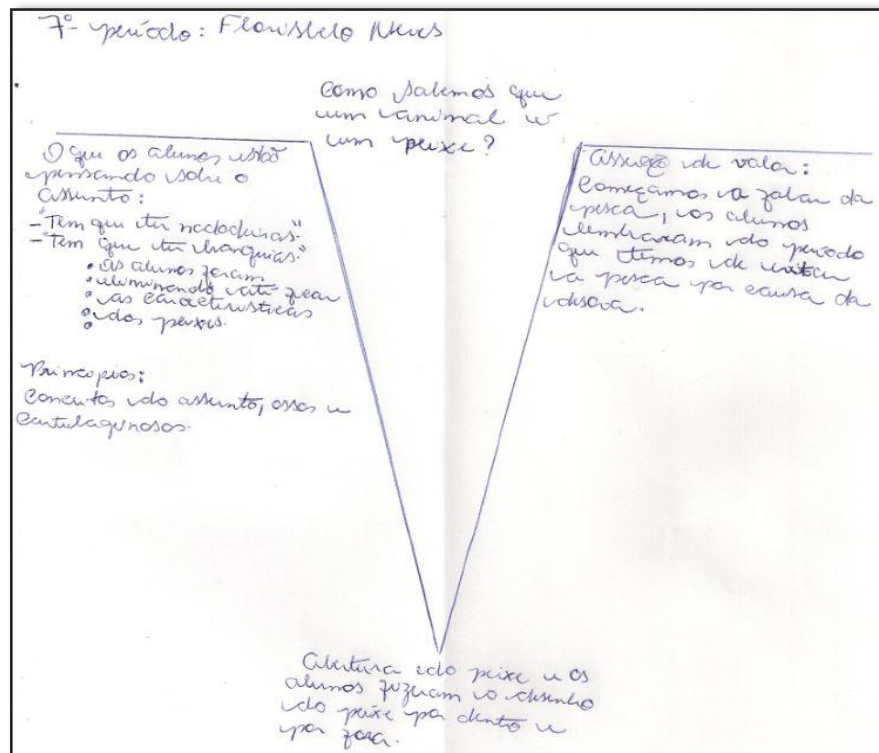 7º período: Florisbelo Neves
Como sabemos que
um animal é
um peixe?
O que os alunos estão
pensando sobre o
assunto:
- "Tem que ter nadadeiras."
- "Tem que ter branquias."
• Os alunos foram
• eliminando até ficar
• as características
• dos peixes.
Princípios:
Conceitos do assunto, ossos e
cartilaginosos.
Asserção de valor:
Começamos a falar da
pesca, os alunos
lembraram do período
que temos de evitar
a pesca por causa da
desova.
Abertura do peixe e os
alunos fizeram o desenho
do peixe por dentro e
por fora.